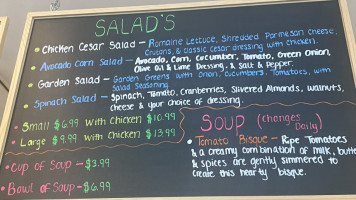 SALAD'S
• Chicken Cesar Salad - Romaine Lettuce, Shredded Parmesan Cheese,
Crutons, & classic cesar dressing with chicken.
• Avocado Corn Salad - Avocado, Corn, Cucumber, Tomato, Green Onion,
Olive Oil & Lime Dressing, & Salt & Pepper.
• Garden Salad - Garden Greens with Onion, Cucumbers, Tomatoes, with
Salad Seasoning
• Spinach Salad - Spinach, Tomato, Cranberries, Slivered Almonds, walnuts,
cheese & your choice of dressing.
• Small $6.99 with Chicken $10.99
• Large $9.99 with Chicken $13.99
SOUP (changes Daily)
• Tomato Bisque - Ripe Tomatoes
& a creamy combination of milk, butte
& spices are gently simmered to
create this hearty bisque.
• Cup of Soup - $3.99
• Bowl of Soup - $6.99